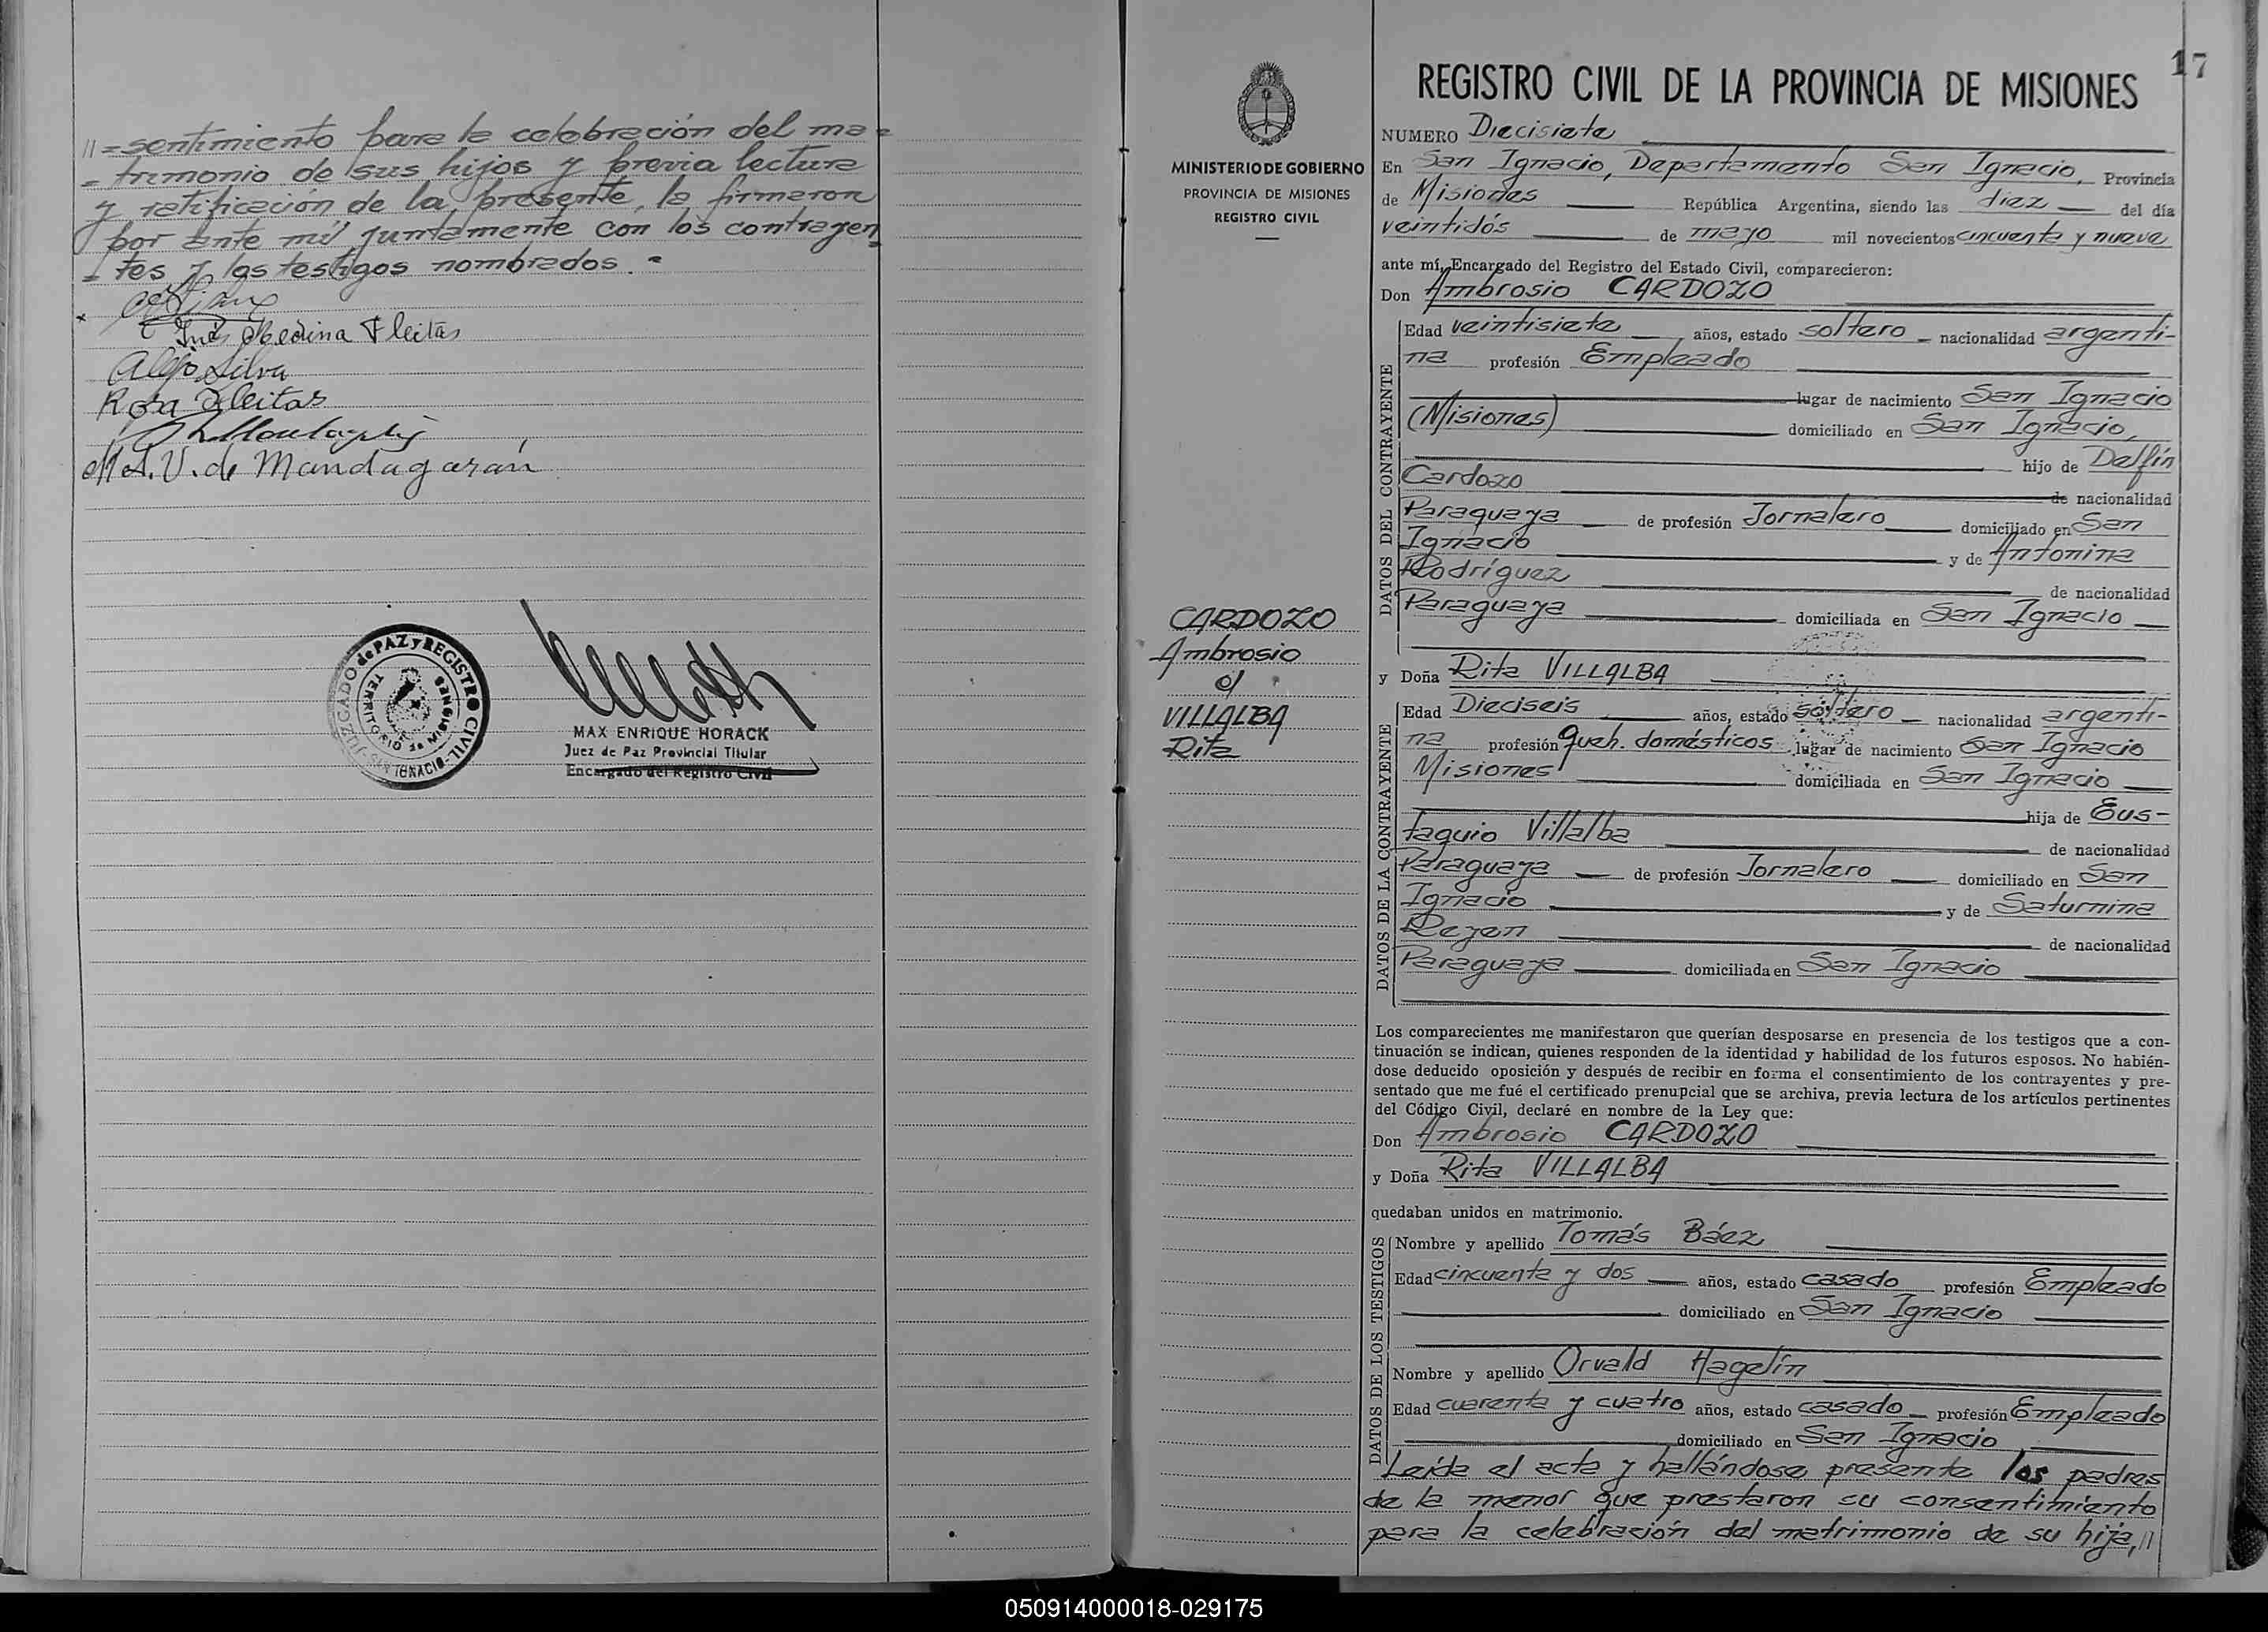 //=sentimiento para la celebración del ma=
=trimonio de sus hijos y previa lectura
y ratificación de la presente, la firmaron
por ante mí, juntamente con los contrayen
=tes y los testigos nombrados.=
Inés Medina Fleitas
Alejo Silva
Rosa Fleitas
M A. V. de Mandagarán
JUZGADO de PAZ y REGISTRO CIVIL
TERRITORIO de MISIONES
SAN IGNACIO
MAX ENRIQUE HORACK
Juez de Paz Provincial Titular
Encargado del Registro Civil
17
MINISTERIO DE GOBIERNO
PROVINCIA DE MISIONES
REGISTRO CIVIL
CARDOZO
Ambrosio
c/
VILLALBA
Rita
REGISTRO CIVIL DE LA PROVINCIA DE MISIONES
NUMERO Diecisiete
En San Ignacio, Departamento San Ignacio, Provincia
de Misiones República Argentina, siendo las diez del día
veintidós de mayo mil novecientos cincuenta y nueve
ante mí, Encargado del Registro del Estado Civil, comparecieron:
Don Ambrosio CARDOZO
DATOS DEL CONTRAYENTE
Edad veintisiete años, estado soltero nacionalidad argenti-
na profesión Empleado
lugar de nacimiento San Ignacio
(Misiones) domiciliado en San Ignacio,
hijo de Delfín
Cardozo de nacionalidad
Paraguaya de profesión Jornalero domiciliado en San
Ignacio y de Antonina
Rodríguez de nacionalidad
Paraguaya domiciliada en San Ignacio
y Doña Rita VILLALBA
DATOS DE LA CONTRAYENTE
Edad Dieciseis años, estado soltero nacionalidad argenti-
na profesión queh. domésticos lugar de nacimiento San Ignacio
Misiones domiciliada en San Ignacio
hija de Eus-
taquio Villalba de nacionalidad
Paraguaya de profesión Jornalero domiciliado en San
Ignacio y de Saturnina
Regen de nacionalidad
Paraguaya domiciliada en San Ignacio
Los comparecientes me manifestaron que querían desposarse en presencia de los testigos que a con-
tinuación se indican, quienes responden de la identidad y habilidad de los futuros esposos. No habién-
dose deducido oposición y después de recibir en forma el consentimiento de los contrayentes y pre-
sentado que me fué el certificado prenupcial que se archiva, previa lectura de los artículos pertinentes
del Código Civil, declaré en nombre de la Ley que:
Don Ambrosio CARDOZO
y Doña Rita VILLALBA
quedaban unidos en matrimonio.
DATOS DE LOS TESTIGOS
Nombre y apellido Tomás Báez
Edad cincuenta y dos años, estado casado profesión Empleado
domiciliado en San Ignacio
Nombre y apellido Orvald Hagelín
Edad cuarenta y cuatro años, estado casado profesión Empleado
domiciliado en San Ignacio
Leída el acta y hallándose presente los padres
de la menor que prestaron su consentimiento
para la celebración del matrimonio de su hija,//
050914000018-029175